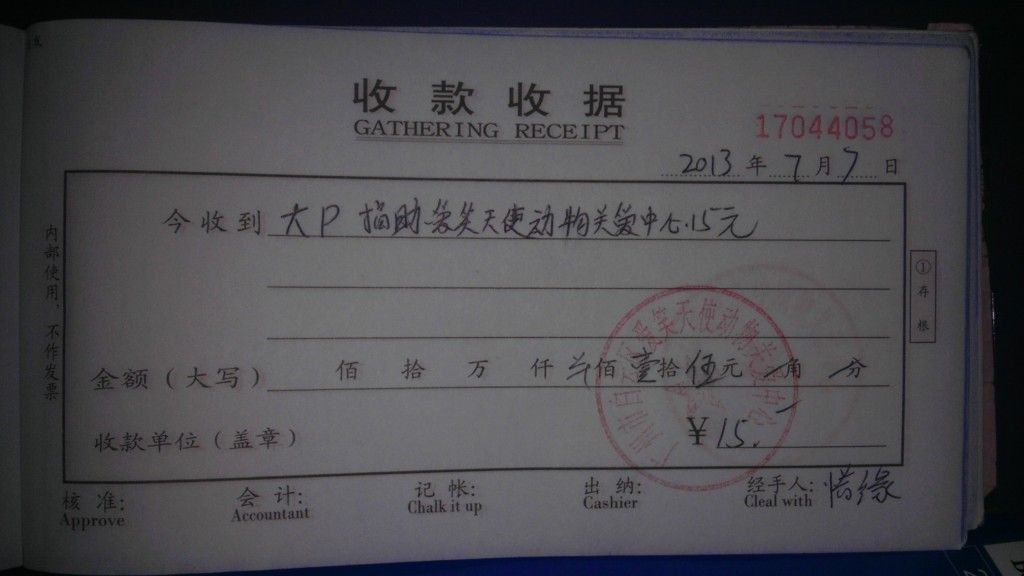 收款收据
GATHERING RECEIPT
17044058
2013年7月7日
今收到 大P 捐助爱笑天使动物关爱中心.15元
金额(大写) 佰 拾 万 仟 佰壹拾伍元 角 分
收款单位(盖章) ¥15.
核准: 会计: 记帐: 出纳: 经手人: 惜缘
Approve Accountant Chalk it up Cashier Cleal with
内部使用，不作发票
①存根
广州市白云区爱笑天使动物关爱中心